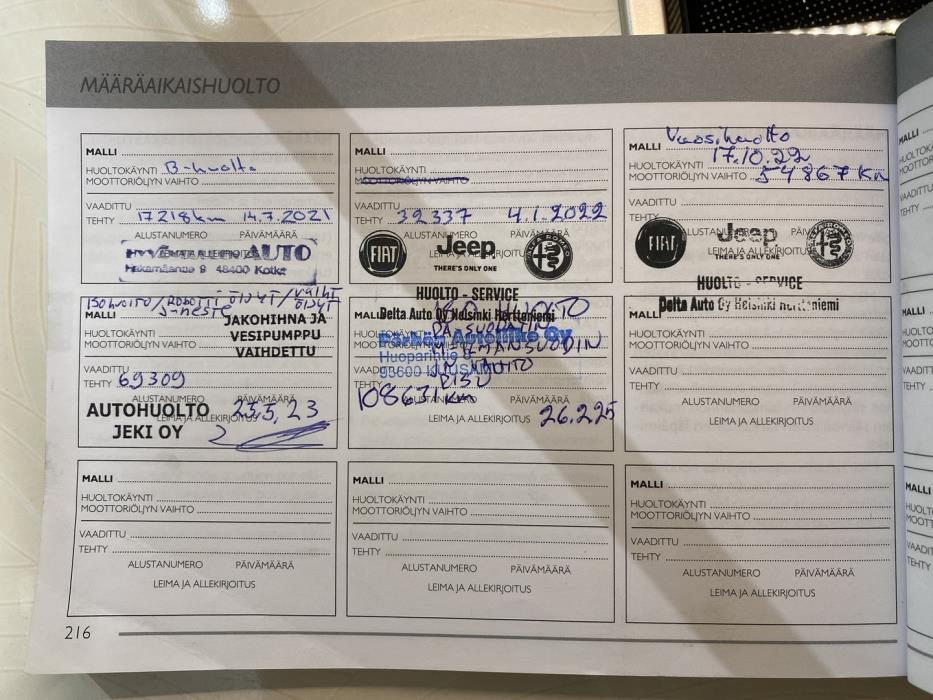 MÄÄRÄAIKAISHUOLTO
MALLI
HUOLTOKÄYNTI B-huolto
MOOTTORIÖLJYN VAIHTO
VAADITTU
TEHTY 17218km 14.7.2021
ALUSTANUMERO PÄIVÄMÄÄRÄ
LEIMA JA ALLEKIRJOITUS
AUTO
Hakamäentie 9 48400 Kotka
MALLI
HUOLTOKÄYNTI
MOOTTORIÖLJYN VAIHTO
VAADITTU
TEHTY 32 337 4.1.2022
ALUSTANUMERO PÄIVÄMÄÄRÄ
LEIMA JA ALLEKIRJOITUS
FIAT
Jeep
THERE'S ONLY ONE
HUOLTO - SERVICE
Delta Auto Oy Helsinki Herttoniemi
Vuosihuolto
MALLI 17.10.22
HUOLTOKÄYNTI
MOOTTORIÖLJYN VAIHTO 54867 Km
VAADITTU
TEHTY
ALUSTANUMERO PÄIVÄMÄÄRÄ
LEIMA JA ALLEKIRJOITUS
FIAT
Jeep
THERE'S ONLY ONE
HUOLTO - SERVICE
Delta Auto Oy Helsinki Herttoniemi
ISO HUOLTO/ROBOTTI ÖLJYT/VAIHT ÖLJYT
J-NESTE
MALLI
JAKOHIHNA JA
HUOLTOKÄYNTI
VESIPUMPPU
MOOTTORIÖLJYN VAIHTO
VAIHDETTU
VAADITTU
TEHTY 69309
ALUSTANUMERO PÄIVÄMÄÄRÄ
23.5.23
LEIMA JA ALLEKIRJOITUS
AUTOHUOLTO
JEKI OY
MALLI
HUOLTO
RA.SUODATIN
ILMANSUODIN
Huoparintie
VAADITTU
TEHTY
108631 km
ALUSTANUMERO PÄIVÄMÄÄRÄ
26.2.25
LEIMA JA ALLEKIRJOITUS
MALLI
HUOLTOKÄYNTI
MOOTTORIÖLJYN VAIHTO
VAADITTU
TEHTY
ALUSTANUMERO PÄIVÄMÄÄRÄ
LEIMA JA ALLEKIRJOITUS
MALLI
HUOLTOKÄYNTI
MOOTTORIÖLJYN VAIHTO
VAADITTU
TEHTY
ALUSTANUMERO PÄIVÄMÄÄRÄ
LEIMA JA ALLEKIRJOITUS
MALLI
HUOLTOKÄYNTI
MOOTTORIÖLJYN VAIHTO
VAADITTU
TEHTY
ALUSTANUMERO PÄIVÄMÄÄRÄ
LEIMA JA ALLEKIRJOITUS
MALLI
HUOLTOKÄYNTI
MOOTTORIÖLJYN VAIHTO
VAADITTU
TEHTY
ALUSTANUMERO PÄIVÄMÄÄRÄ
LEIMA JA ALLEKIRJOITUS
216